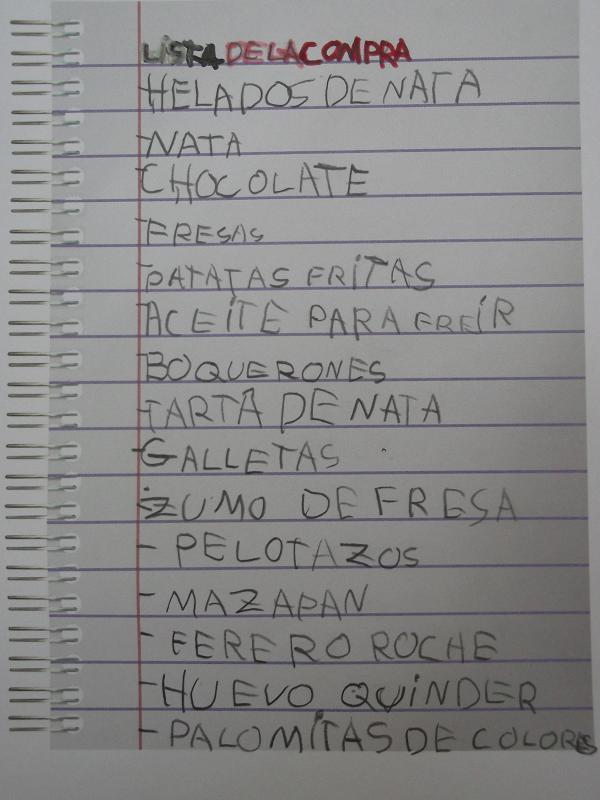 LISTA DE LA COMPRA
-HELADOS DE NATA
-NATA
-CHOCOLATE
-FRESAS
-PATATAS FRITAS
-ACEITE PARA FREÍR
-BOQUERONES
-TARTA DE NATA
-GALLETAS
-ZUMO DE FRESA
- PELOTAZOS
- MAZAPAN
- FERERO ROCHE
-HUEVO QUINDER
- PALOMITAS DE COLORES